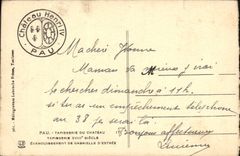 Château Henri IV
PAU
Ma chère Yvonne
Maman va mieux j'irai
te chercher dimanche à 11h
si tu as un empêchement téléphone
au 38 je serai là.
Bonjour affectueux
PAU. - TAPISSERIE DU CHATEAU
TAPISSERIE XVIII° SIÈCLE
ÉVANOUISSEMENT DE GABRIELLE D'ESTRÉE